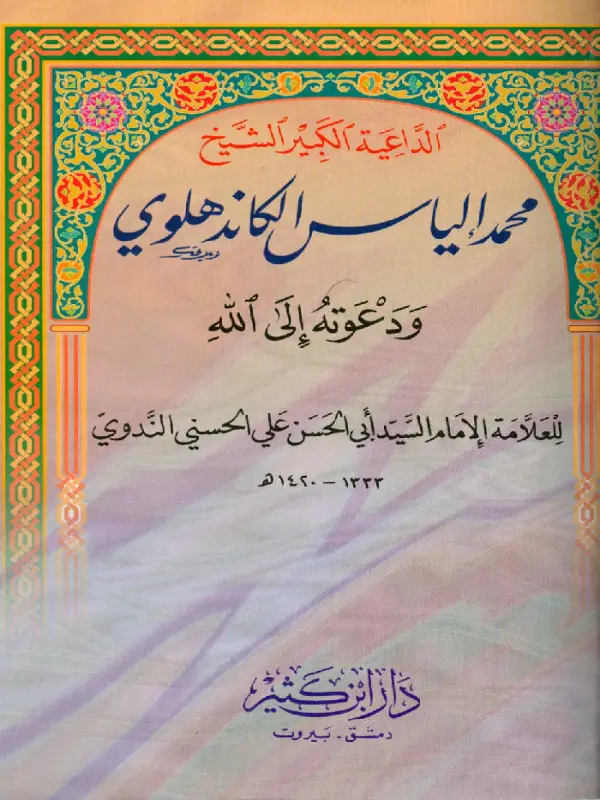 الدَّاعِيَة الكَبِير الشَّيخ
محمد إلياس الكاندهلوي
وَدَعْوَتهُ إِلَىٰ اللهِ
لِلعَلَّامَة الإمَام السَّيّد أَبي الحَسَن عَلي الحسَني النَّدويّ
١٣٣٣ - ١٤٢٠هـ
دَار ابْن كَثير
دمشق - بيروت